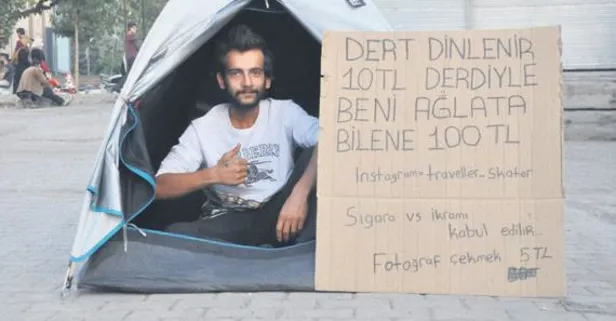 DERT DİNLENİR
10TL DERDİYLE
BENİ AĞLATA
BİLENE 100TL
Instagram= traveller_skater
Sigara vs ikramı
kabul edilir..
Fotograf çekmek 5TL
BURBERRY